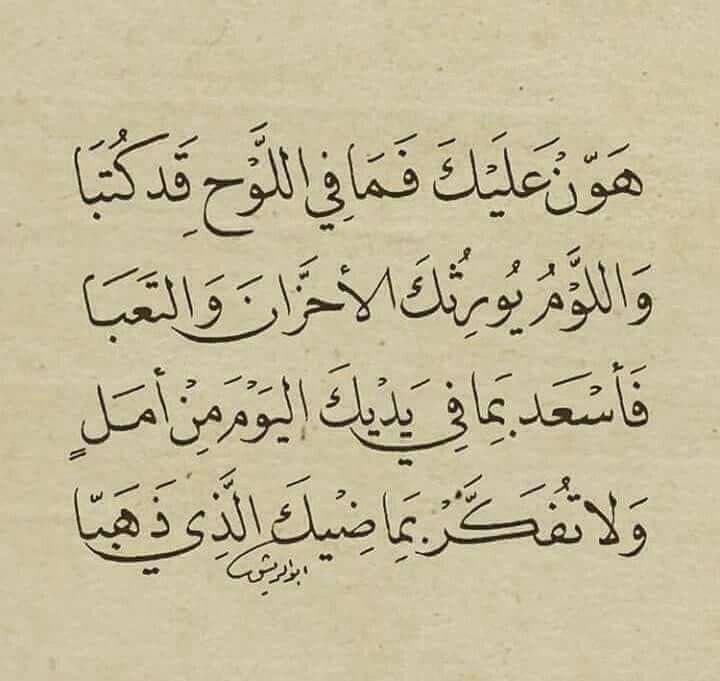 هَوِّنْ عَلَيْكَ فَمَا فِي اللَّوْحِ قَد كُتِبَا
وَاللَّوْمُ يُورِثُكَ الأحزَانَ وَالتَعَبَا
فَأسْعَد بِمَا فِي يَدْيكَ اليَوْمَ مِنْ أمَلٍ
وَلا تُفَكِّرْ بِمَاضِيْكَ الَّذِي ذَهَبَا